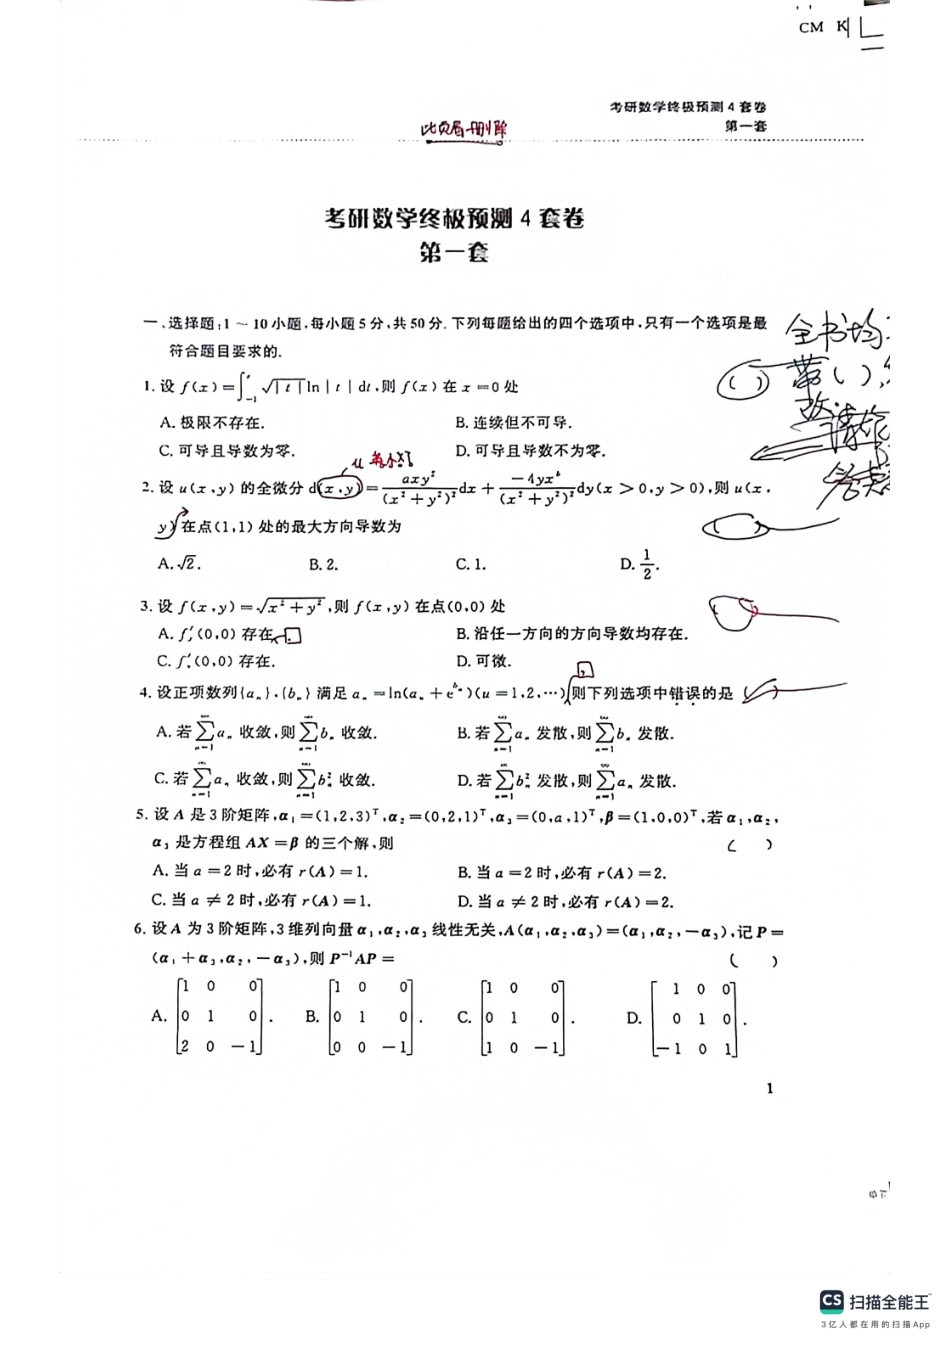 CM K
考研数学终极预测4套卷
第一套
此页眉删除
考研数学终极预测 4 套卷
第一套
一、选择题:1 ~ 10 小题,每小题 5 分,共 50 分.下列每题给出的四个选项中,只有一个选项是最
符合题目要求的.
1. 设 f(x) = ∫_{-1}^{x} √|t| ln|t| dt,则 f(x) 在 x = 0 处
A. 极限不存在. B. 连续但不可导.
C. 可导且导数为零. D. 可导且导数不为零.
2. 设 u(x,y) 的全微分 d(x,y) = axy²/(x²+y²)² dx + -4yx^b/(x²+y²)² dy(x > 0,y > 0),则 u(x,
y) 在点(1,1) 处的最大方向导数为
A. √2. B. 2. C. 1. D. 1/2.
3. 设 f(x,y) = √(x²+y²),则 f(x,y) 在点(0,0) 处
A. f′(0,0) 存在. B. 沿任一方向的方向导数均存在.
C. f′(0,0) 存在. D. 可微.
4. 设正项数列{aₙ},{bₙ} 满足 aₙ = ln(aₙ + e^{bₙ})(u = 1,2,…),则下列选项中错误的是
A. 若 ∑_{n=1}^{∞} aₙ 收敛,则 ∑_{n=1}^{∞} bₙ 收敛. B. 若 ∑_{n=1}^{∞} aₙ 发散,则 ∑_{n=1}^{∞} bₙ 发散.
C. 若 ∑_{n=1}^{∞} aₙ 收敛,则 ∑_{n=1}^{∞} bₙ² 收敛. D. 若 ∑_{n=1}^{∞} bₙ² 发散,则 ∑_{n=1}^{∞} aₙ 发散.
5. 设 A 是 3 阶矩阵,α₁ = (1,2,3)ᵀ,α₂ = (0,2,1)ᵀ,α₃ = (0,a,1)ᵀ,β = (1,0,0)ᵀ,若 α₁,α₂,
α₃ 是方程组 AX = β 的三个解,则 ( )
A. 当 a = 2 时,必有 r(A) = 1. B. 当 a = 2 时,必有 r(A) = 2.
C. 当 a ≠ 2 时,必有 r(A) = 1. D. 当 a ≠ 2 时,必有 r(A) = 2.
6. 设 A 为 3 阶矩阵,3 维列向量 α₁,α₂,α₃ 线性无关,A(α₁,α₂,α₃) = (α₁,α₂,-α₃),记 P =
(α₁ + α₃,α₂,-α₃),则 P⁻¹AP = ( )
A. [1 0 0; 0 1 0; 2 0 -1]. B. [1 0 0; 0 1 0; 0 0 -1]. C. [1 0 0; 0 1 0; 1 0 -1]. D. [1 0 0; 0 1 0; -1 0 1].
1
CS 扫描全能王
3亿人都在用的扫描App